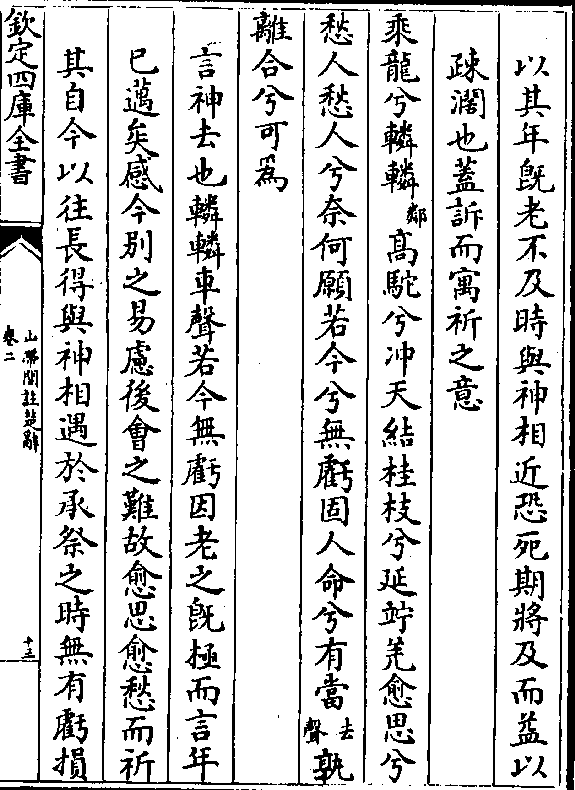 以其年旣老不及時與神相近恐死期將及而益以
疎濶也葢訴而寓祈之意
乘龍兮轔轔鄰髙駝兮冲天結桂枝兮延竚羌愈思兮
愁人愁人兮奈何願若今兮無虧固人命兮有當去聲孰
離合兮可為
言神去也轔轔車聲若今無虧因老之旣極而言年
已邁矣感今别之易慮後會之難故愈思愈愁而祈
其自今以往長得與神相遇於承祭之時無有虧損
欽定四庫全書
山帶閣註楚辭
卷二
十三